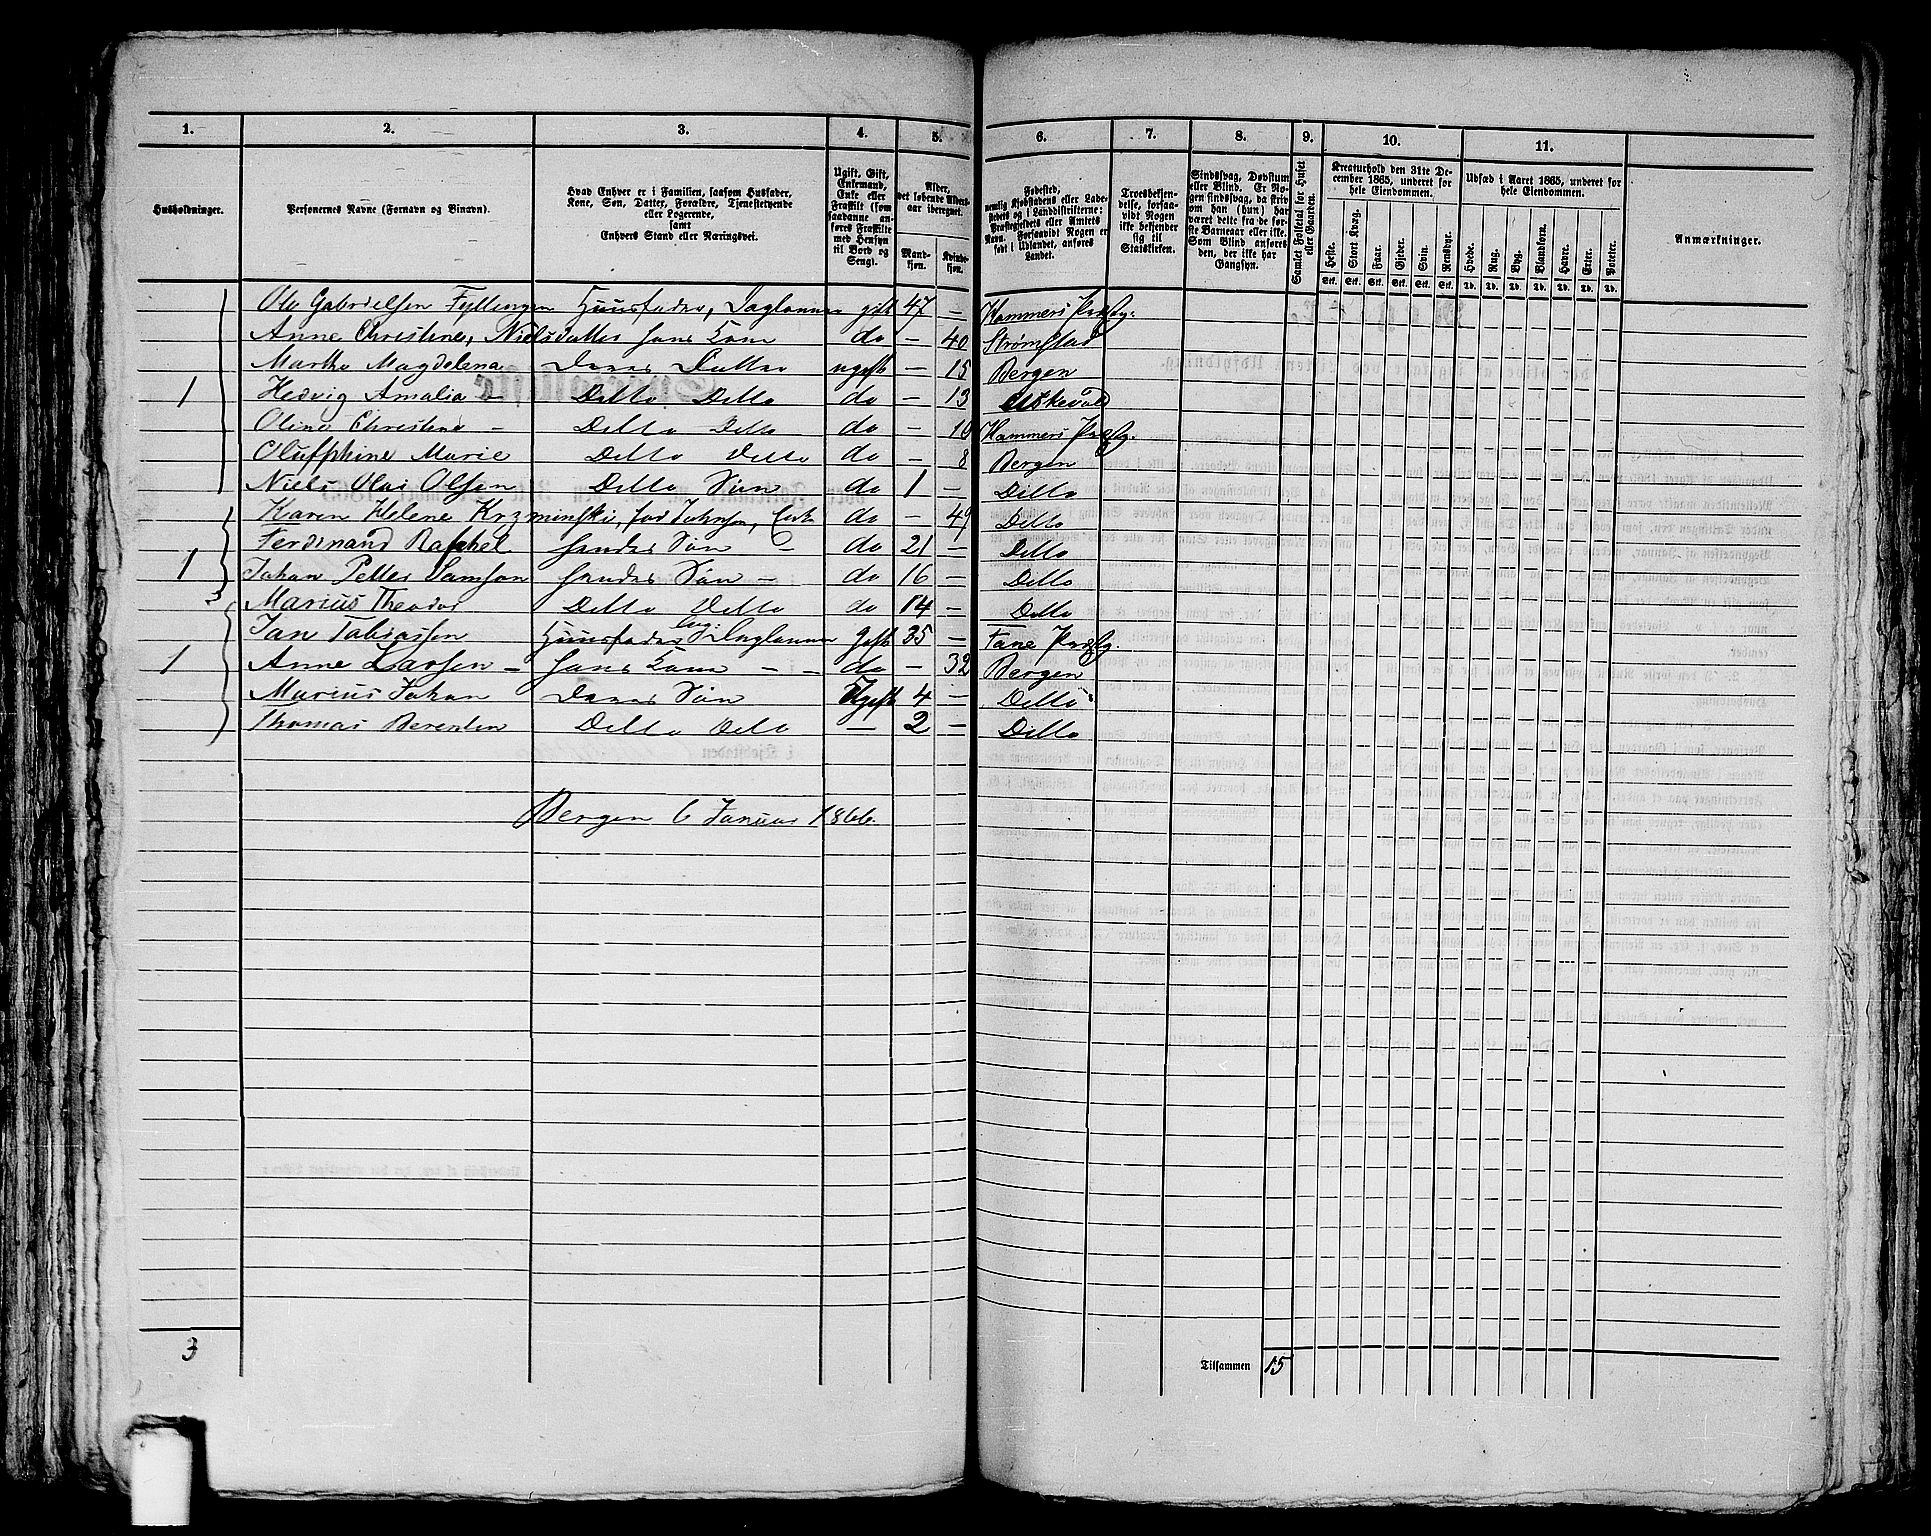 1. 2. 3. 4. 5. 6. 7. 8. 9. 10. 11.
Husholdninger.
Personernes Navne (Fornavn og Binavn).
Hvad Enhver er i Familien, saasom Husfader,
Kone, Søn, Datter, Forældre, Tjenestetyende
eller Logerende,
samt
Enhvers Stand eller Næringsvei.
Ugift, Gift,
Enkemand,
Enke eller
Fraskilt (som
saadanne an-
føres Fraskilte
med Hensyn
til Bord og
Seng).
Alder,
det løbende Alders-
aar iberegnet.
Mand-
kjøn.
Kvinde-
kjøn.
Fødested,
nemlig Kjøbstadens eller Lade-
stedets og i Landdistrikterne:
Præstegjeldets eller Amtets
Navn. Forsaavidt Nogen er
født i Udlandet, anføres
Landet.
Troesbekjen-
delse, forsaa-
vidt Nogen
ikke bekjender
sig til
Statskirken.
Sindssvag, Døvstum
eller Blind. Er No-
gen sindssvag, da skriv
om han (hun) har
været dette fra de før-
ste Barneaar eller ikke.
Som Blind anføres
den, der ikke har
Gangsyn.
Samlet Folketal for Huset
eller Gaarden.
Kreaturhold den 31te De-
cember 1865, underet for
hele Eiendommen.
Heste. Stort Kvæg. Faar. Gjeder. Svin. Rensdyr.
Stk. Stk. Stk. Stk. Stk. Stk.
Udsæd i Aaret 1865, underet for
hele Eiendommen.
Hvede. Rug. Byg. Blandkorn. Havre. Erter. Poteter.
Td. Td. Td. Td. Td. Td. Td.
Anmærkninger.
Ole Gabrielsen Fyllingen Huusfader, Daglønner gift 47 — Hammers Præstg:
Anne Christine, Nielsdatter hans Kone do — 40 Strømstad
Marthe Magdelena Deres Datter ugift — 15 Bergen
1 Hedvig Amalia — Ditto Ditto do — 13
Oline Christine — Ditto Ditto do — 10 Hammers Præstg.
Oluffphine Marie Ditto Ditto do — 8 Bergen
Niels Olai Olsen Ditto Søn do 1 — Ditto
Karen Helene Krzminski, fød Johnsen, Enke do — 49 Ditto
Ferdinand Raphel hendes Søn — do 21 — Ditto
1 Johan Petter Samson hendes Søn — do 16 — Ditto
Marius Theodor Ditto Ditto do 14 — Ditto
Jan Tobiassen Huusfader logi: Daglønner Gift 35 — Fane Præstg.
1 Anne Larsen — hans Kone — — do — 32 Bergen
Marius Johan Deres Søn Ugift 4 — Ditto
Thomas Berentin Ditto Ditto — 2 — Ditto
Bergen 6 Januar 1866.
3
Tilsammen 15